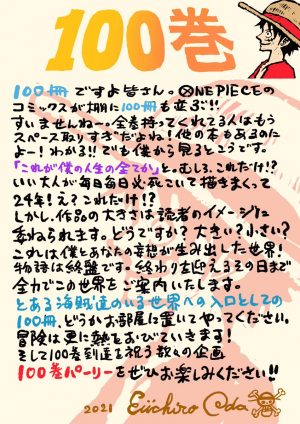 100巻
100冊ですよ皆さん。ONE PIECEの
コミックスが棚に100冊も並ぶ!!
すいませんねー。全巻持ってくれてる人はもう
スペース取りすぎだよね!他の本もあるのだ
よー!わかる!!でも僕から見るとこうです。
「これが僕の人生の全てか」と。むしろこれだけ!?
いい大人が毎日毎日必死こいて描きまくって
24年!え?これだけ!?
しかし、作品の大きさは読者のイメージに
委ねられます。どうですか?大きい?小さい?
これは僕とあなたの妄想が生み出した世界!
物語は終盤です。終わりを迎えるその日まで
全力でこの世界をご案内いたします。
とある海賊達のいる世界への入口としての
100冊、どうかお部屋に置いてやってください。
冒険は更に熱をおびていきます!
そして100巻到達を祝う数々の企画
100巻パーリーをぜひお楽しみください!!
2021 Eiichiro Oda